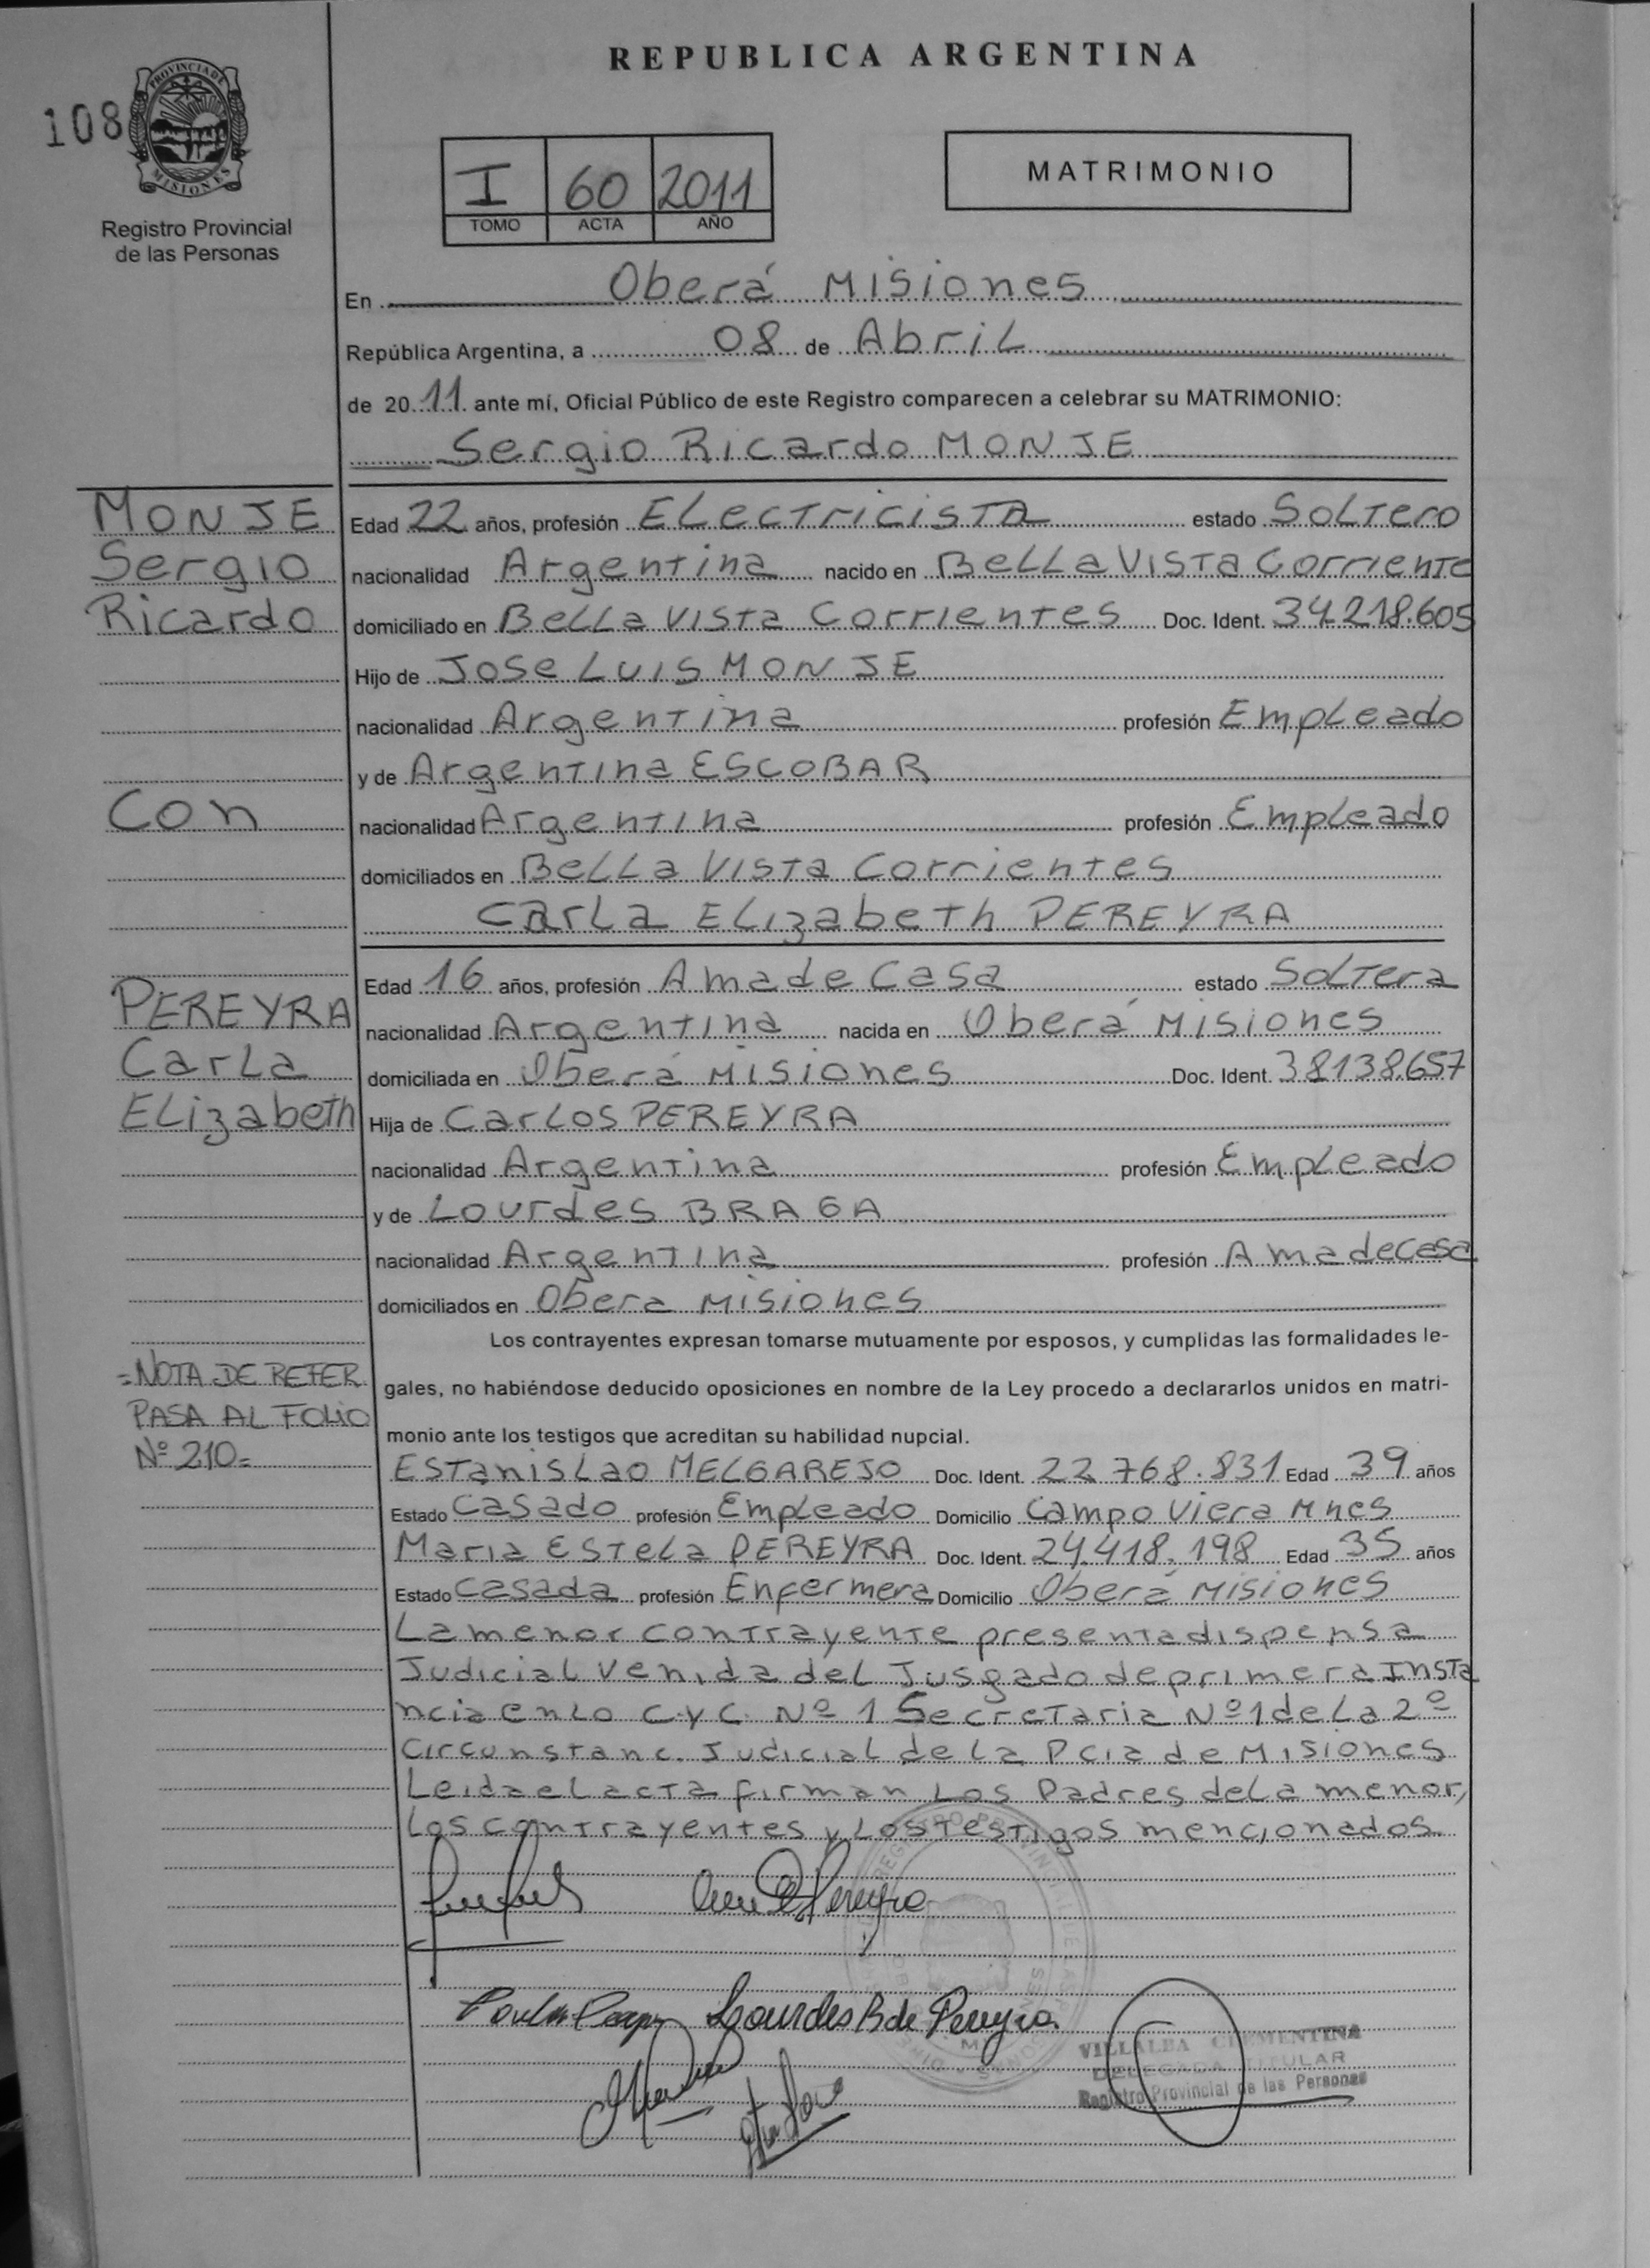 REPUBLICA ARGENTINA
108
PROVINCIA DE
MISIONES
Registro Provincial
de las Personas
I 60 2011
TOMO ACTA AÑO
MATRIMONIO
En Oberá Misiones
República Argentina, a 08 de Abril
de 2011 ante mí, Oficial Público de este Registro comparecen a celebrar su MATRIMONIO:
Sergio Ricardo MONJE
MONJE
Sergio
Ricardo
Edad 22 años, profesión Electricista estado Soltero
nacionalidad Argentina nacido en Bella Vista Corriente
domiciliado en Bella Vista Corrientes Doc. Ident. 34.218.605
Hijo de Jose Luis MONJE
nacionalidad Argentina profesión Empleado
y de Argentina ESCOBAR
Con
nacionalidad Argentina profesión Empleado
domiciliados en Bella Vista Corrientes
Carla Elizabeth PEREYRA
PEREYRA
Carla
Elizabeth
Edad 16 años, profesión Ama de Casa estado Soltera
nacionalidad Argentina nacida en Oberá Misiones
domiciliada en Oberá Misiones Doc. Ident. 38138.657
Hija de Carlos PEREYRA
nacionalidad Argentina profesión Empleado
y de Lourdes BRAGA
nacionalidad Argentina profesión Ama de Casa
domiciliados en Obera Misiones
Los contrayentes expresan tomarse mutuamente por esposos, y cumplidas las formalidades le-
gales, no habiéndose deducido oposiciones en nombre de la Ley procedo a declararlos unidos en matri-
monio ante los testigos que acreditan su habilidad nupcial.
=NOTA DE REFER
PASA AL FOLIO
Nº 210=
Estanislao MELGAREJO Doc. Ident. 22.768.831 Edad 39 años
Estado Casado profesión Empleado Domicilio Campo Viera Mnes
Maria Estela PEREYRA Doc. Ident. 24.418.198 Edad 35 años
Estado Casada profesión Enfermera Domicilio Oberá Misiones
La menor contrayente presenta dispensa
Judicial venida del Jusgado de primera Insta
ncia en lo C.y C. Nº 1 Secretaria Nº 1 de la 2º
Circunstanc. Judicial de la Pcia de Misiones
Leida el acta firman los Padres de la menor,
Los contrayentes y los testigos mencionados.
Pereyra
Lourdes B de Pereyra
VILLALBA CLEMENTINA
DELEGADA TITULAR
Registro Provincial de las Personas